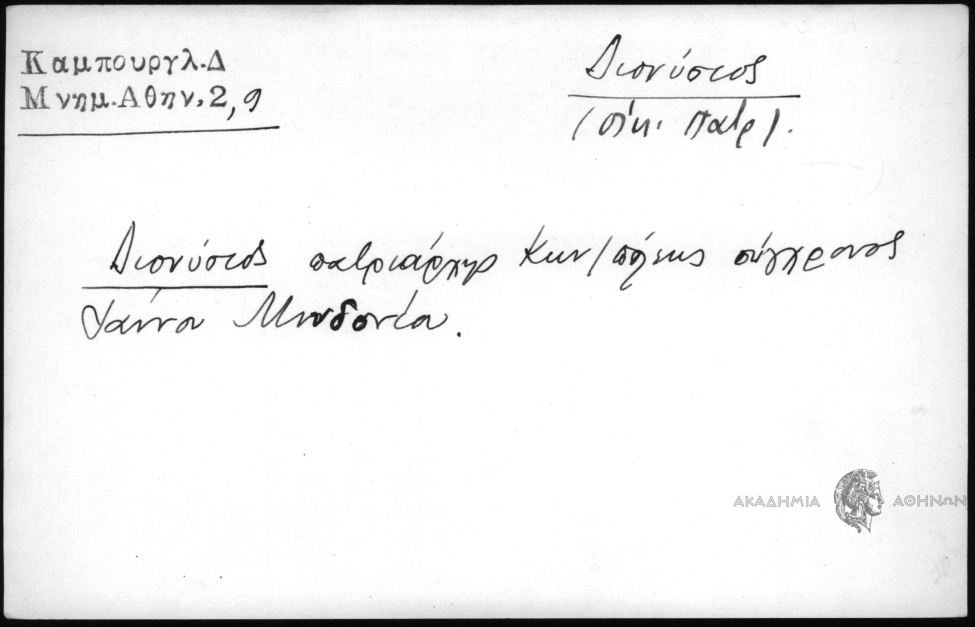 Καμπουργλ.Δ
Μνημ.Αθην.2,9
Διονύσιος
(οἰκ. Πατρ).
Διονύσιος πατριάρχης Κων/πόλεως σύγχρονος
ΑΚΑΔΗΜΙΑ ΑΘΗΝΩΝ